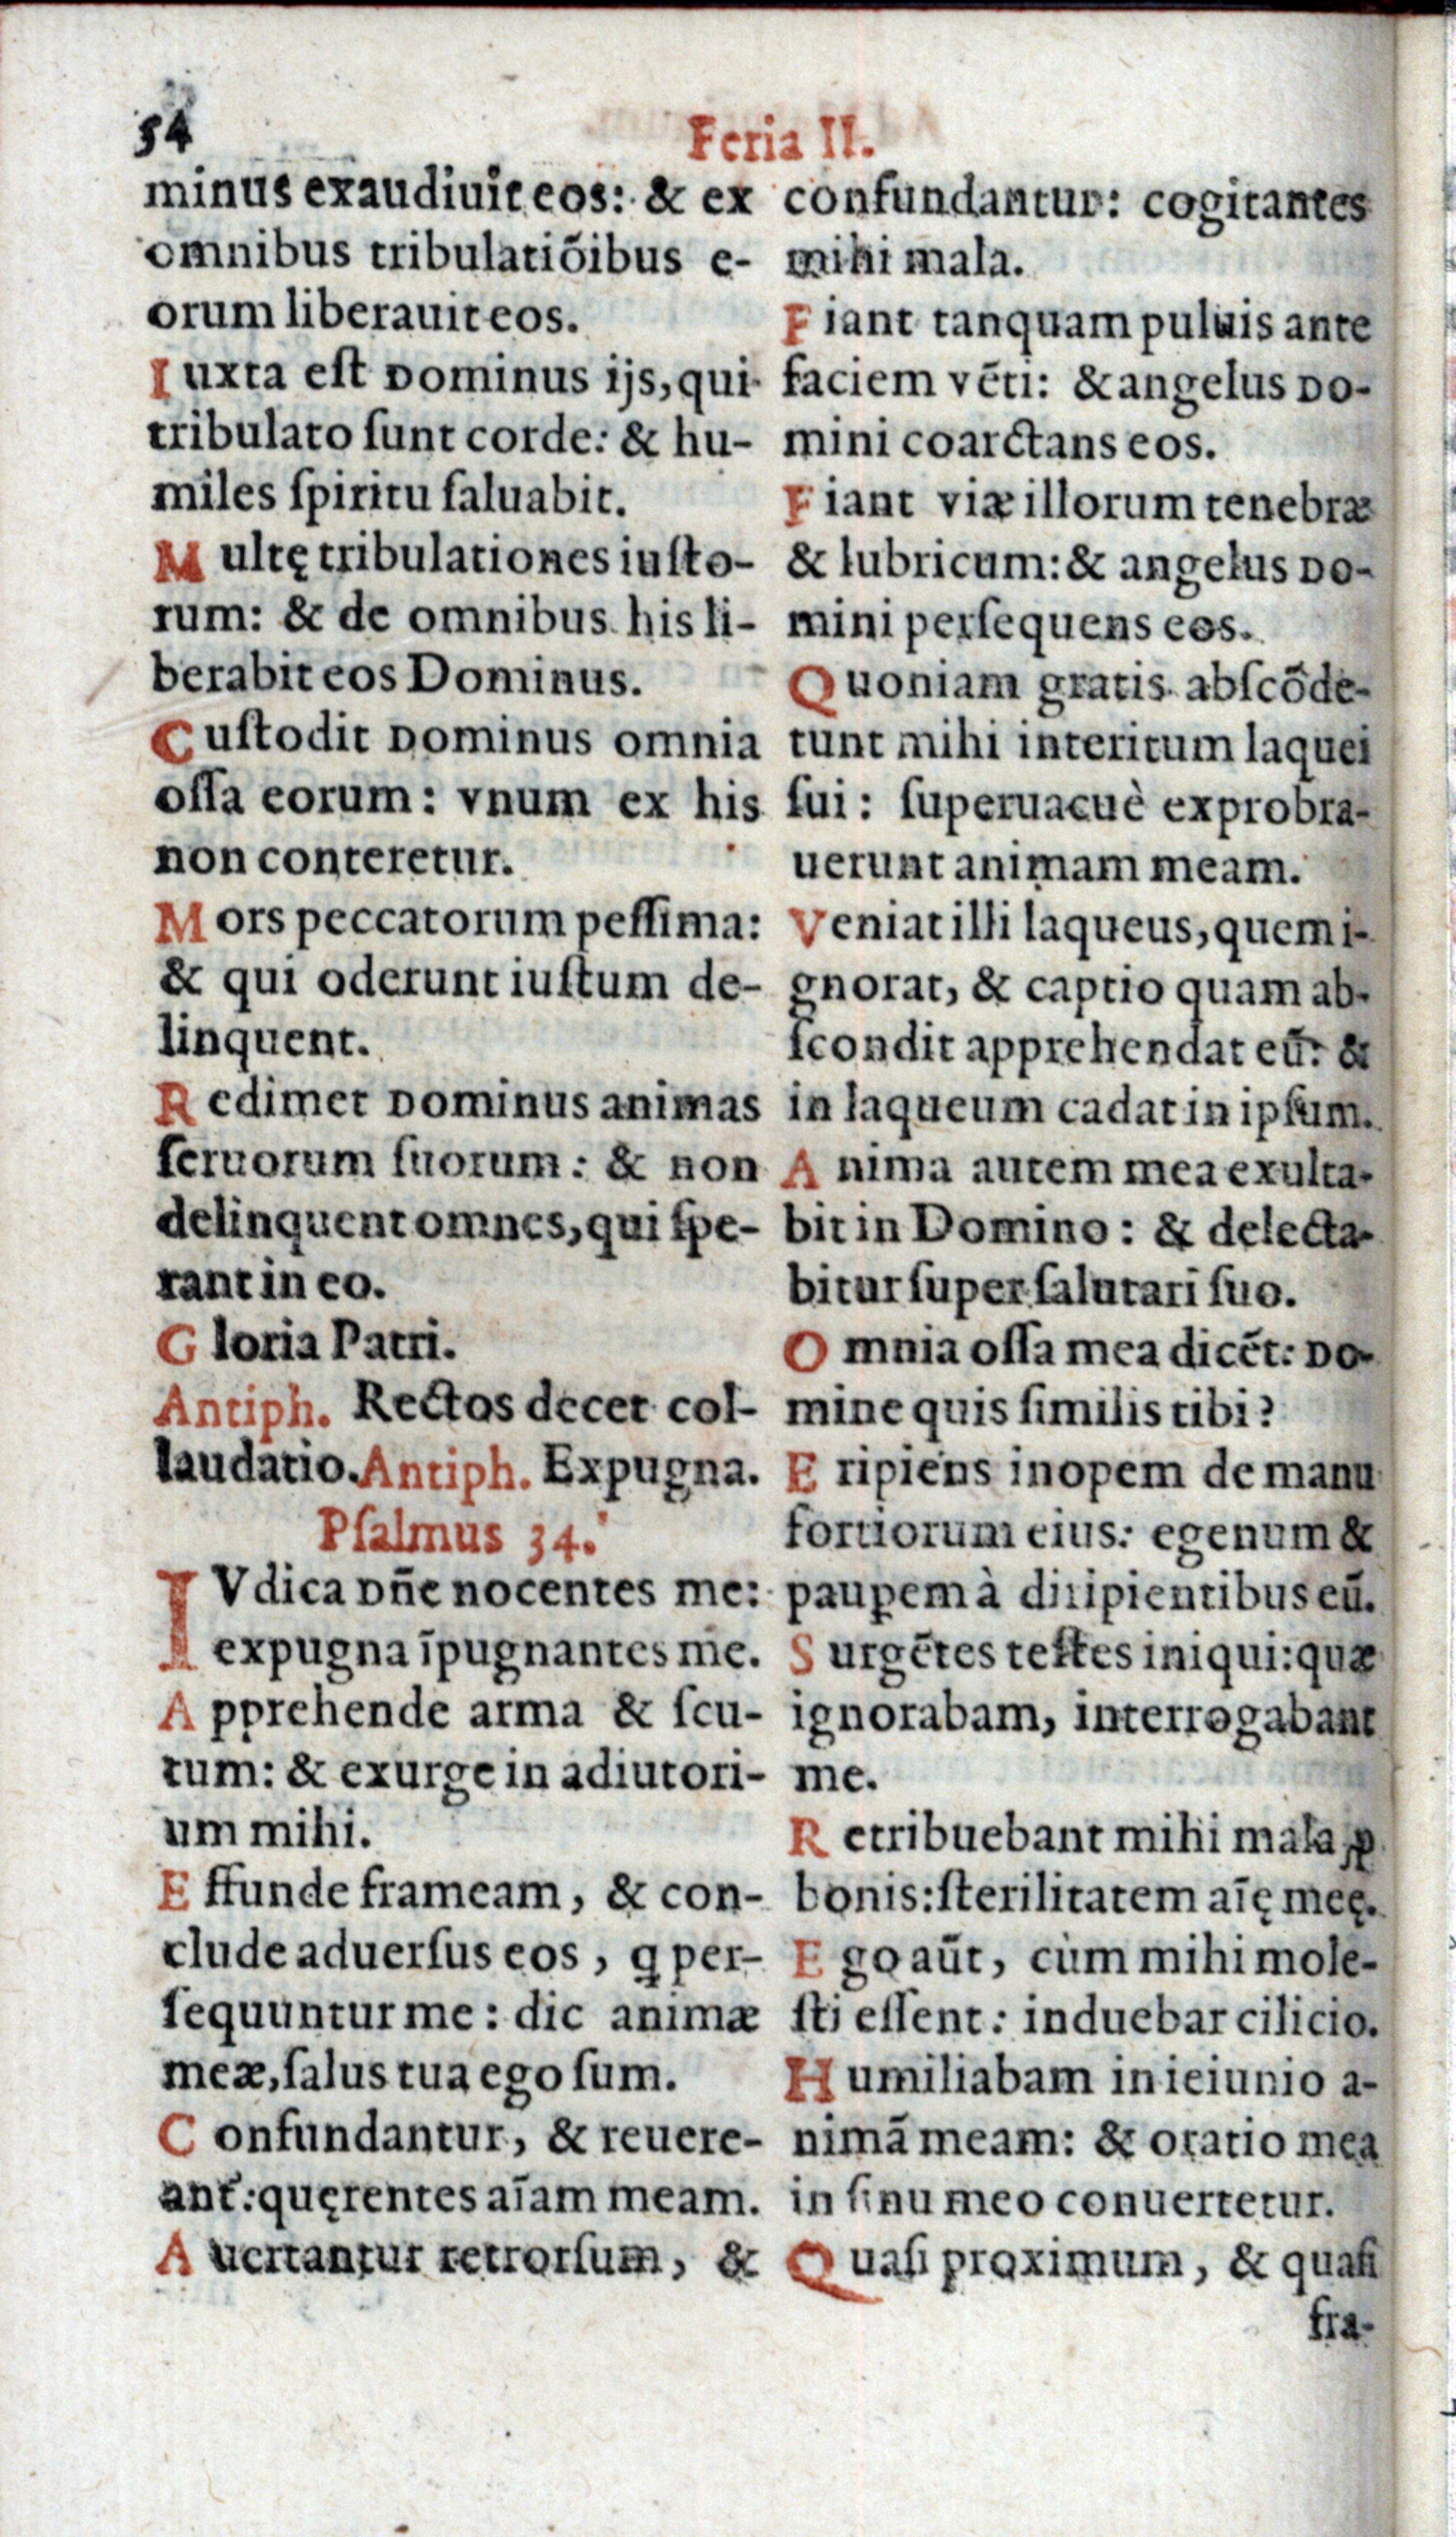 54
Feria II.
minus exaudiuit eos: & ex
omnibus tribulatiõibus e-
orum liberauit eos.
Iuxta eſt Dominus ijs, qui
tribulato ſunt corde: & hu-
miles ſpiritu ſaluabit.
Multę tribulationes iuſto-
rum: & de omnibus his li-
berabit eos Dominus.
Cuſtodit Dominus omnia
oſſa eorum: vnum ex his
non conteretur.
Mors peccatorum peſſima:
& qui oderunt iuſtum de-
linquent.
Redimet Dominus animas
ſeruorum ſuorum: & non
delinquent omnes, qui ſpe-
rant in eo.
Gloria Patri.
Antiph. Rectos decet col-
laudatio. Antiph. Expugna.
Pſalmus 34.
IVdica Dñe nocentes me:
expugna ĩpugnantes me.
Apprehende arma & ſcu-
tum: & exurge in adiutori-
um mihi.
Effunde frameam, & con-
clude aduerſus eos, ꝗ per-
ſequuntur me: dic animæ
meæ, ſalus tua ego ſum.
Confundantur, & reuere-
ant̃: quęrentes aĩam meam.
Auertantur retrorſum, &
confundantur: cogitantes
mihi mala.
Fiant tanquam puluis ante
faciem vẽti: & angelus Do-
mini coarctans eos.
Fiant viæ illorum tenebræ
& lubricum: & angelus Do-
mini perſequens eos.
Quoniam gratis abſcõde-
runt mihi interitum laquei
ſui: ſuperuacuè exprobra-
uerunt animam meam.
Veniat illi laqueus, quem i-
gnorat, & captio quam ab-
ſcondit apprehendat eũ: &
in laqueum cadat in ipſum.
Anima autem mea exulta-
bit in Domino: & delecta-
bitur ſuper ſalutari ſuo.
Omnia oſſa mea dicẽt: Do-
mine quis ſimilis tibi?
Eripiens inopem de manu
fortiorum eius: egenum &
pauꝑem à diripientibus eũ.
Surgẽtes teſtes iniqui: quæ
ignorabam, interrogabant
me.
Retribuebant mihi mala ꝓ
bonis: ſterilitatem aĩę meę.
Ego aũt, cùm mihi mole-
ſti eſſent: induebar cilicio.
Humiliabam in ieiunio a-
nimã meam: & oratio mea
in ſinu meo conuertetur.
Quaſi proximum, & quaſi
fra-